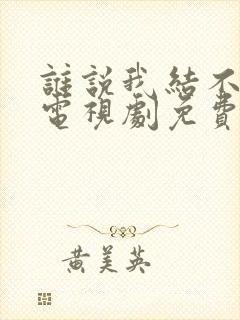 誰說我結不
電視劇免費
黃美英